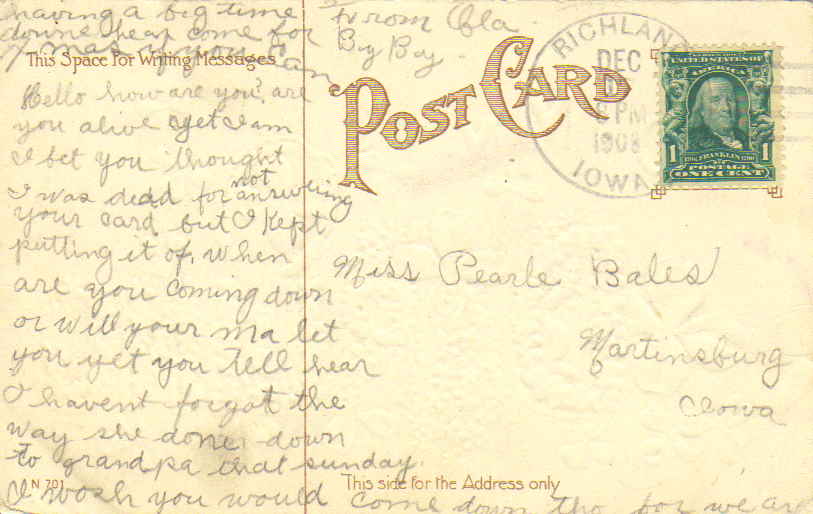 having a big time
doune hear come for
X mas if you can
From Ola
By By.
This Space For Writing Messages
POST CARD
RICHLAND
DEC
PM
1908
IOWA
UNITED STATES OF
AMERICA
1706 FRANKLIN 1790
1 1
POSTAGE
ONE CENT
Hello how are you? are
you alive yet I am
I bet you thought
I was dead for not answering
your card but I kept
putting it of, when
are you coming down
or will your ma let
you yet you Tell hear
I havent forgot the
way she done down
to grandpa that sunday.
I wosh you would come down tho for we are
Miss Pearle Bales
Martinsburg
Iowa
N 701
This side for the Address only